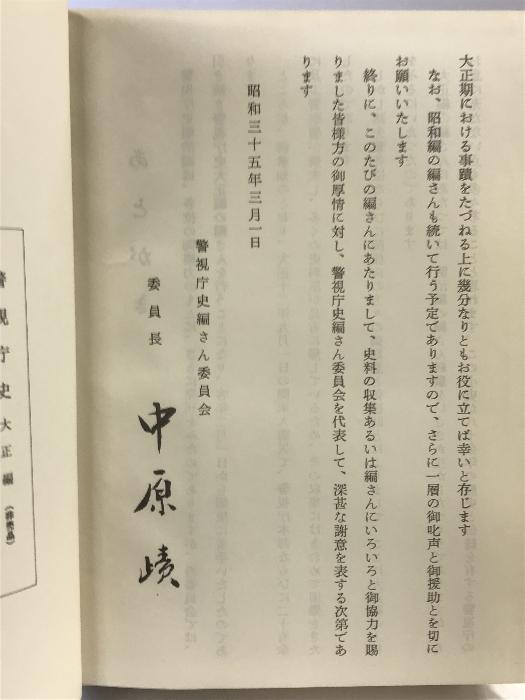 大正期における事蹟をたづねる上に幾分なりともお役に立てば幸いと存じます
なお、昭和編の編さんも続いて行う予定でありますので、さらに一層の御叱声と御援助とを切に
お願いいたします
終りに、このたびの編さんにあたりまして、史料の収集あるいは編さんにいろいろと御協力を賜
りました皆様方の御厚情に対し、警視庁史編さん委員会を代表して、深甚な謝意を表する次第であ
ります
昭和三十五年三月一日
警視庁史編さん委員会
委員長
中原
あとがき
警視庁史 大正編 (非売品)